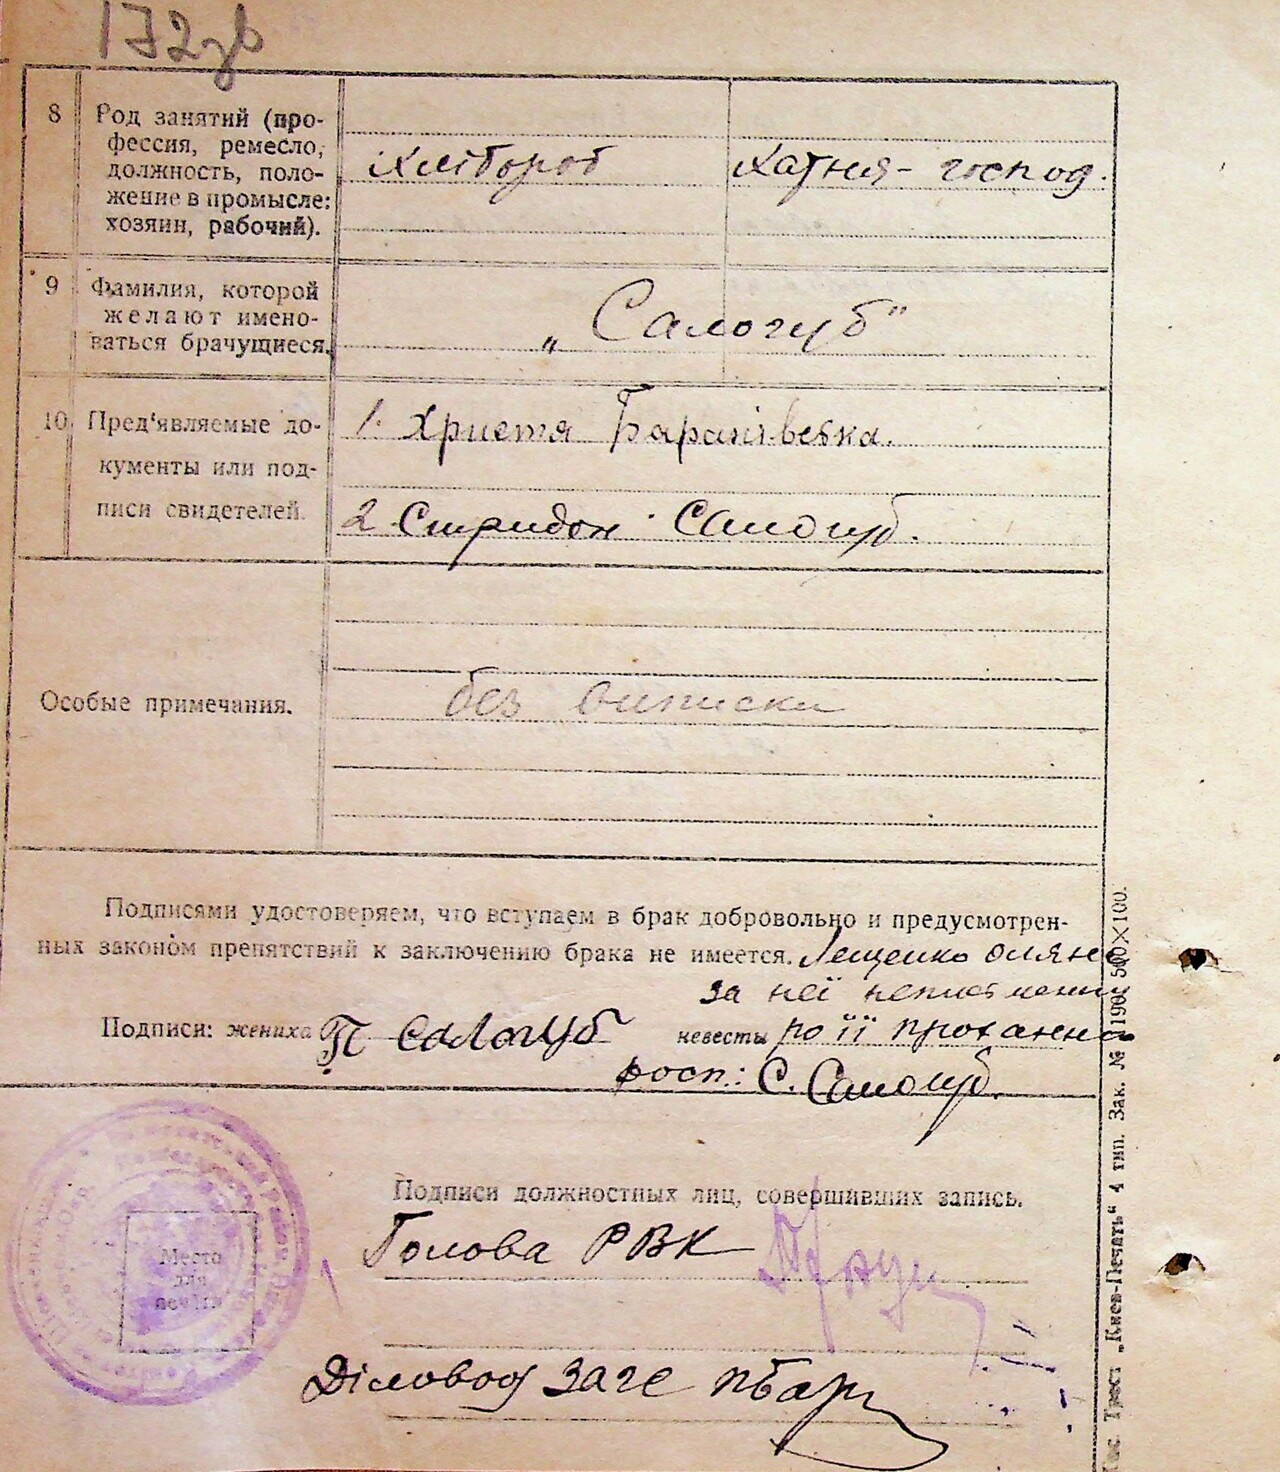 172зв
8 Род занятий (про-
фессия, ремесло,
должность, поло-
жение в промысле:
хозяин, рабочий).
Хлібороб
Хатня - господ.
9 Фамилия, которой
желают имено-
ваться брачущиеся.
„Салогуб"
10 Пред'являемые до-
кументы или под-
писи свидетелей.
1. Христя
2 Спридон Салогуб.
Особые примечания.
без виписки
Подписями удостоверяем, что вступаем в брак добровольно и предусмотрен-
ных законом препятствий к заключению брака не имеется. Лещенко Оляна
за неї неписьменну
Подписи: жениха П Салогуб невесты по її прохання
росп.: С. Салогуб.
Подписи должностных лиц, совершивших запись.
Голова РВК
Место
для
печати
Діловод загс
„Киев-Печать" 4 тип. Зак. № 190 500×100.